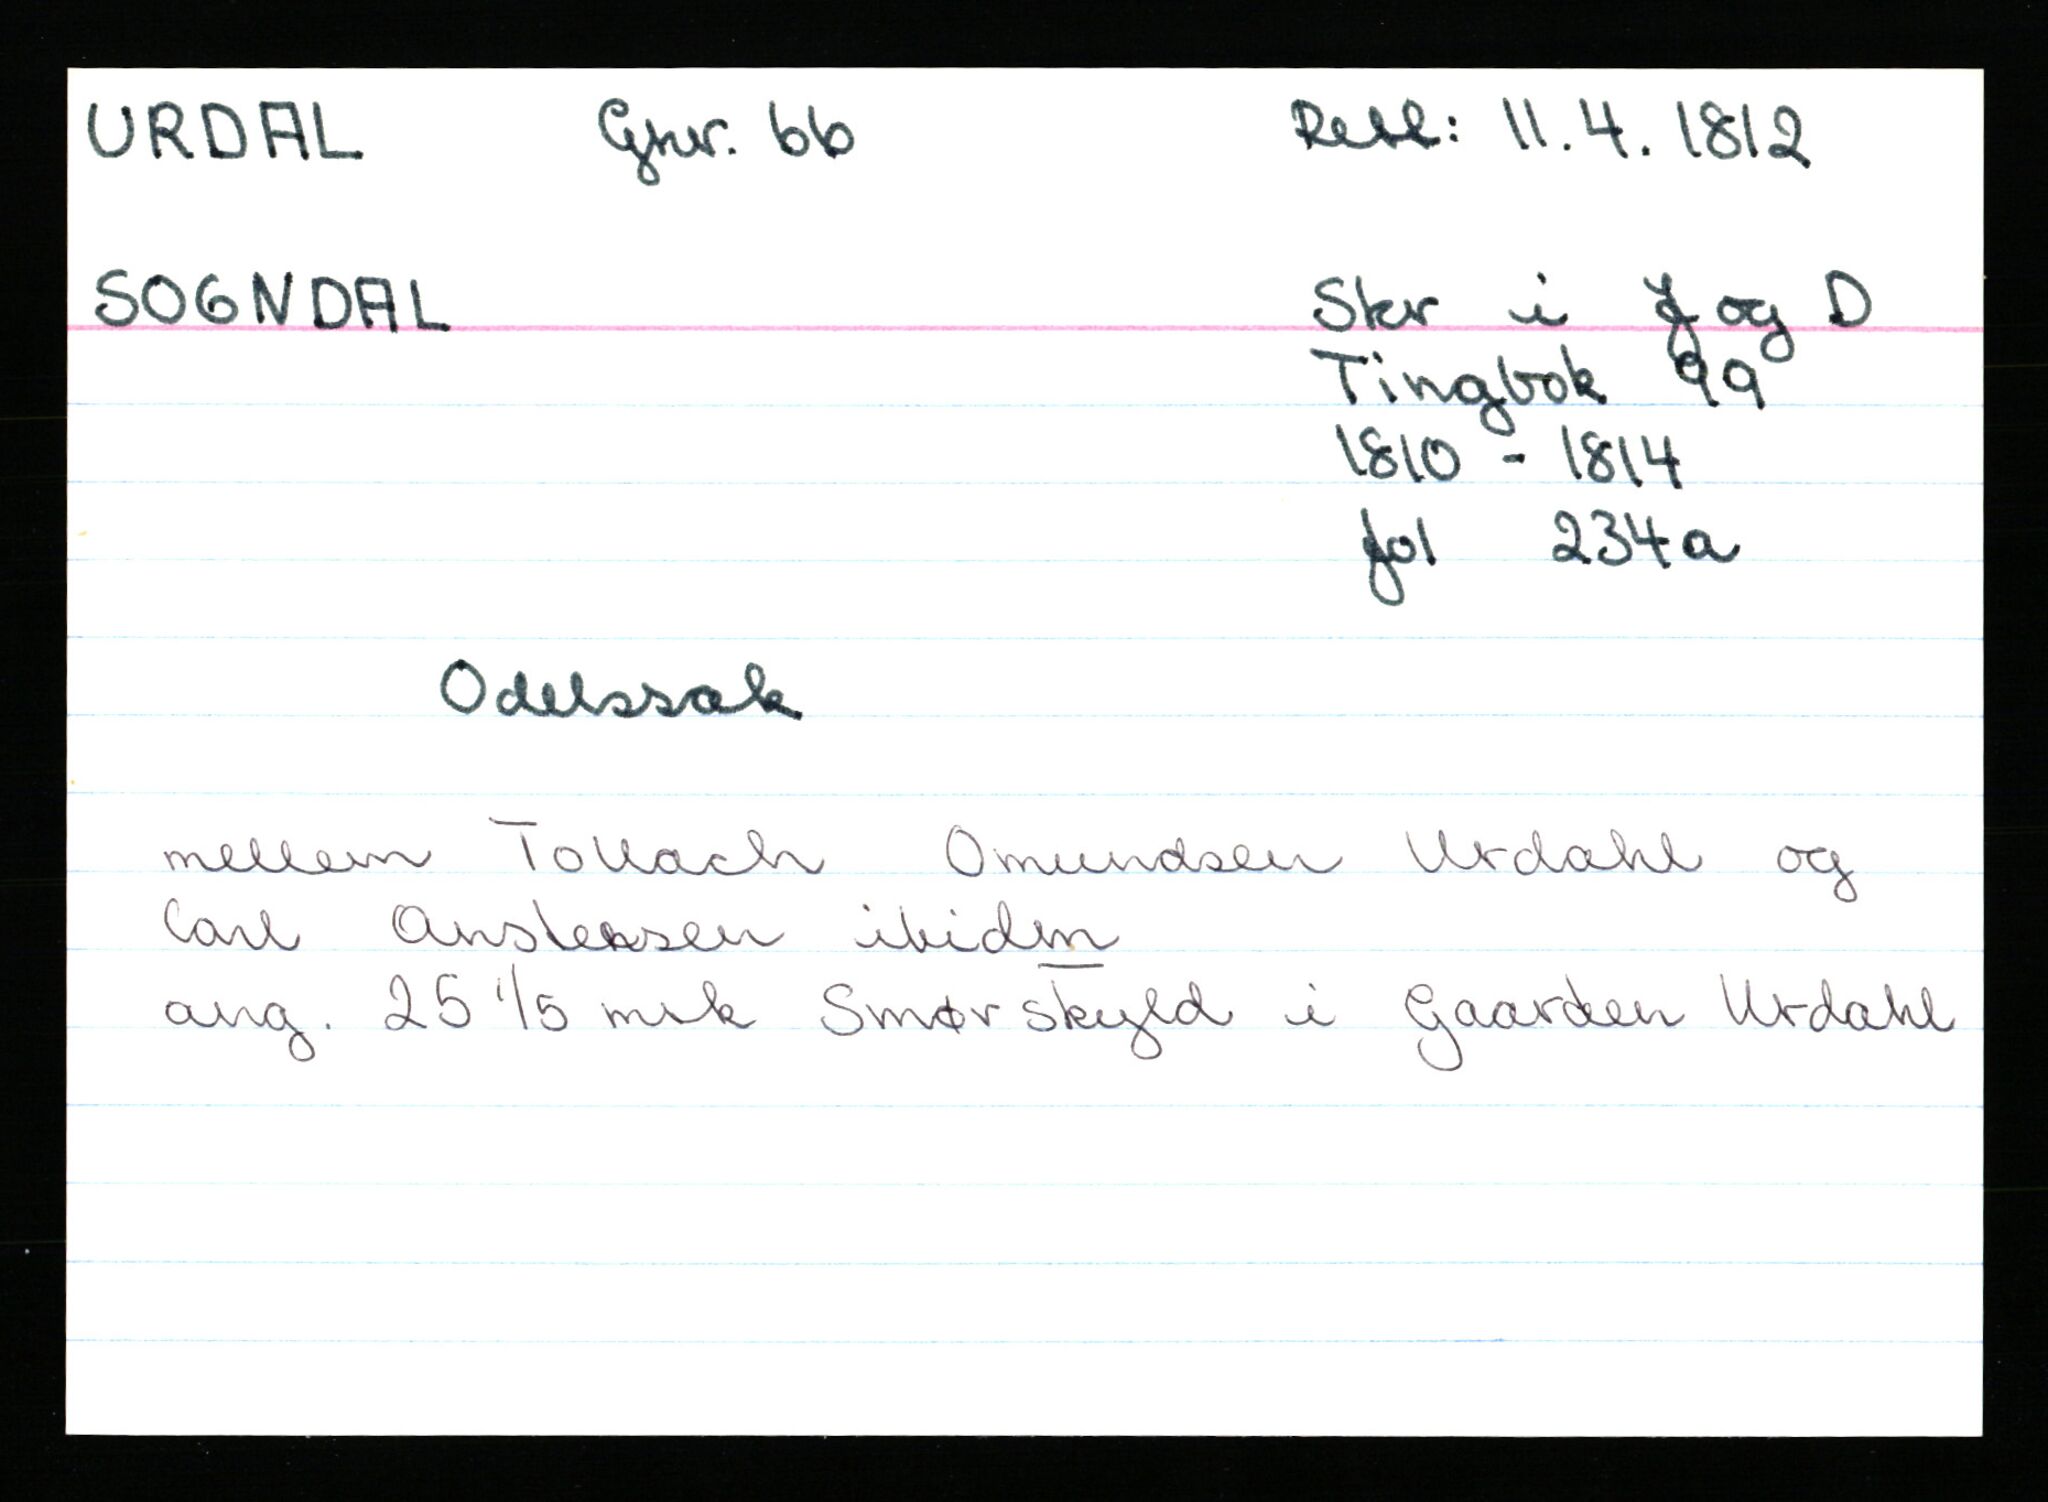 URDAL Gnr. 66 Retl: 11.4.1812
SOGNDAL Skr i J og D
Tingbok 99
1810 - 1814
fol 234a
Odelssak
mellem Tollach Omundsen Urdahl og
Carl Anslaksen ibidm
ang. 25 1/5 mrk Smør skyld i Gaarden Urdahl